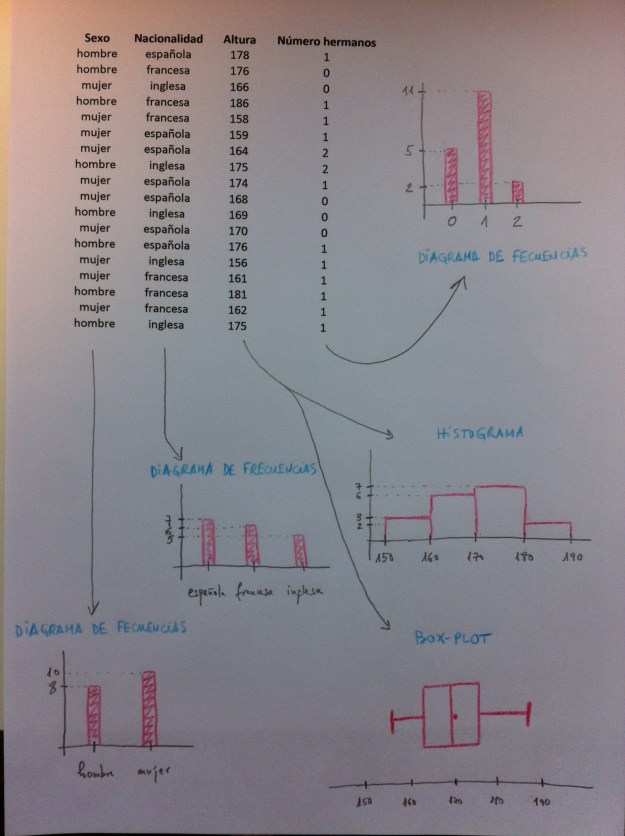 Sexo Nacionalidad Altura Número hermanos
hombre española 178 1
hombre francesa 176 0
mujer inglesa 166 0
hombre francesa 186 1
mujer francesa 158 1
mujer española 159 1
mujer española 164 2
hombre inglesa 175 2
mujer española 174 1
mujer española 168 0
hombre inglesa 169 0
mujer española 170 0
hombre española 176 1
mujer inglesa 156 1
mujer francesa 161 1
hombre francesa 181 1
mujer francesa 162 1
hombre inglesa 175 1
11
5
2
0 1 2
DIAGRAMA DE FECUENCIAS
HISTOGRAMA
7
6
3
2
150 160 170 180 190
DIAGRAMA DE FRECUENCIAS
7
6
5
española francesa inglesa
DIAGRAMA DE FECUENCIAS
10
8
hombre mujer
BOX-PLOT
150 160 170 180 190